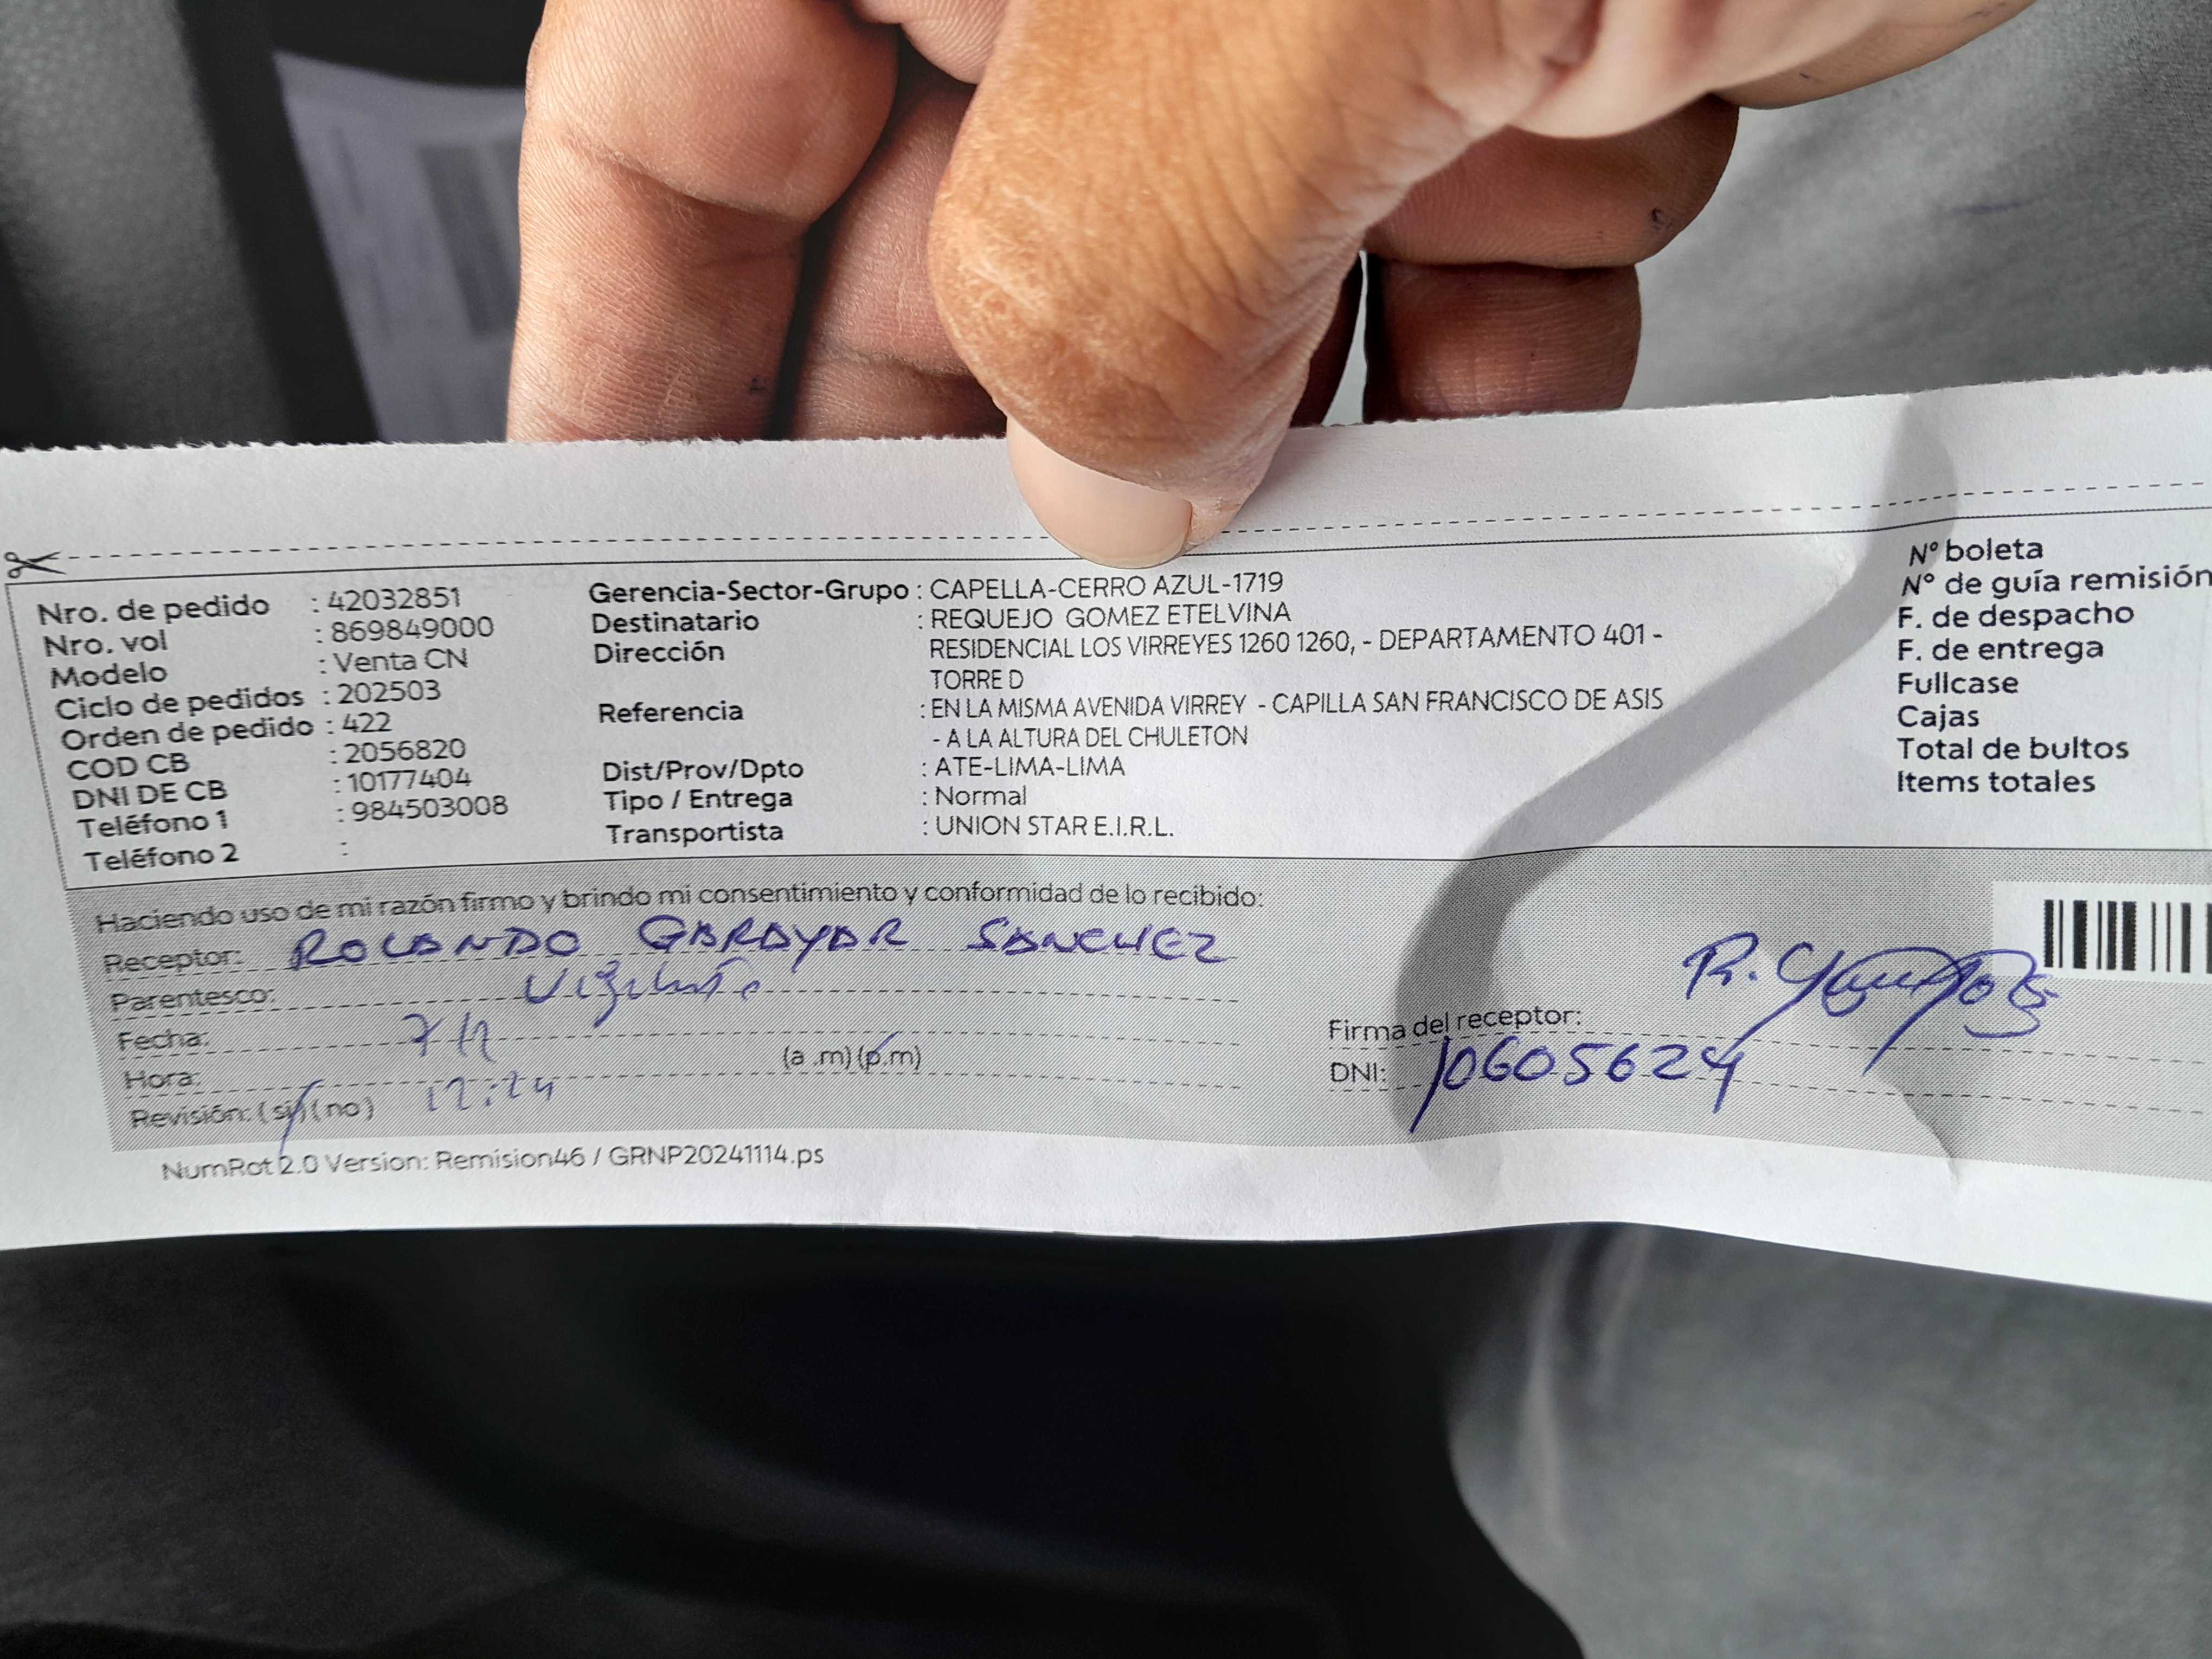 Nro. de pedido : 42032851
Nro. vol : 869849000
Modelo : Venta CN
Ciclo de pedidos : 202503
Orden de pedido : 422
COD CB : 2056820
DNI DE CB : 10177404
Teléfono 1 : 984503008
Teléfono 2 :
Gerencia-Sector-Grupo : CAPELLA-CERRO AZUL-1719
Destinatario : REQUEJO GOMEZ ETELVINA
Dirección RESIDENCIAL LOS VIRREYES 1260 1260, - DEPARTAMENTO 401 -
TORRE D
Referencia : EN LA MISMA AVENIDA VIRREY - CAPILLA SAN FRANCISCO DE ASIS
- A LA ALTURA DEL CHULETON
Dist/Prov/Dpto : ATE-LIMA-LIMA
Tipo / Entrega : Normal
Transportista : UNION STAR E.I.R.L.
Nº boleta
Nº de guía remisión
F. de despacho
F. de entrega
Fullcase
Cajas
Total de bultos
Items totales
Haciendo uso de mi razón firmo y brindo mi consentimiento y conformidad de lo recibido:
Receptor: ROLANDO GARAYAR SANCHEZ
Parentesco: Vigilante
Fecha:
Hora: (a .m) (p.m)
Revisión: (si) (no) 12:24
Firma del receptor:
DNI: 10605624
NumRot 2.0 Version: Remision46 / GRNP20241114.ps